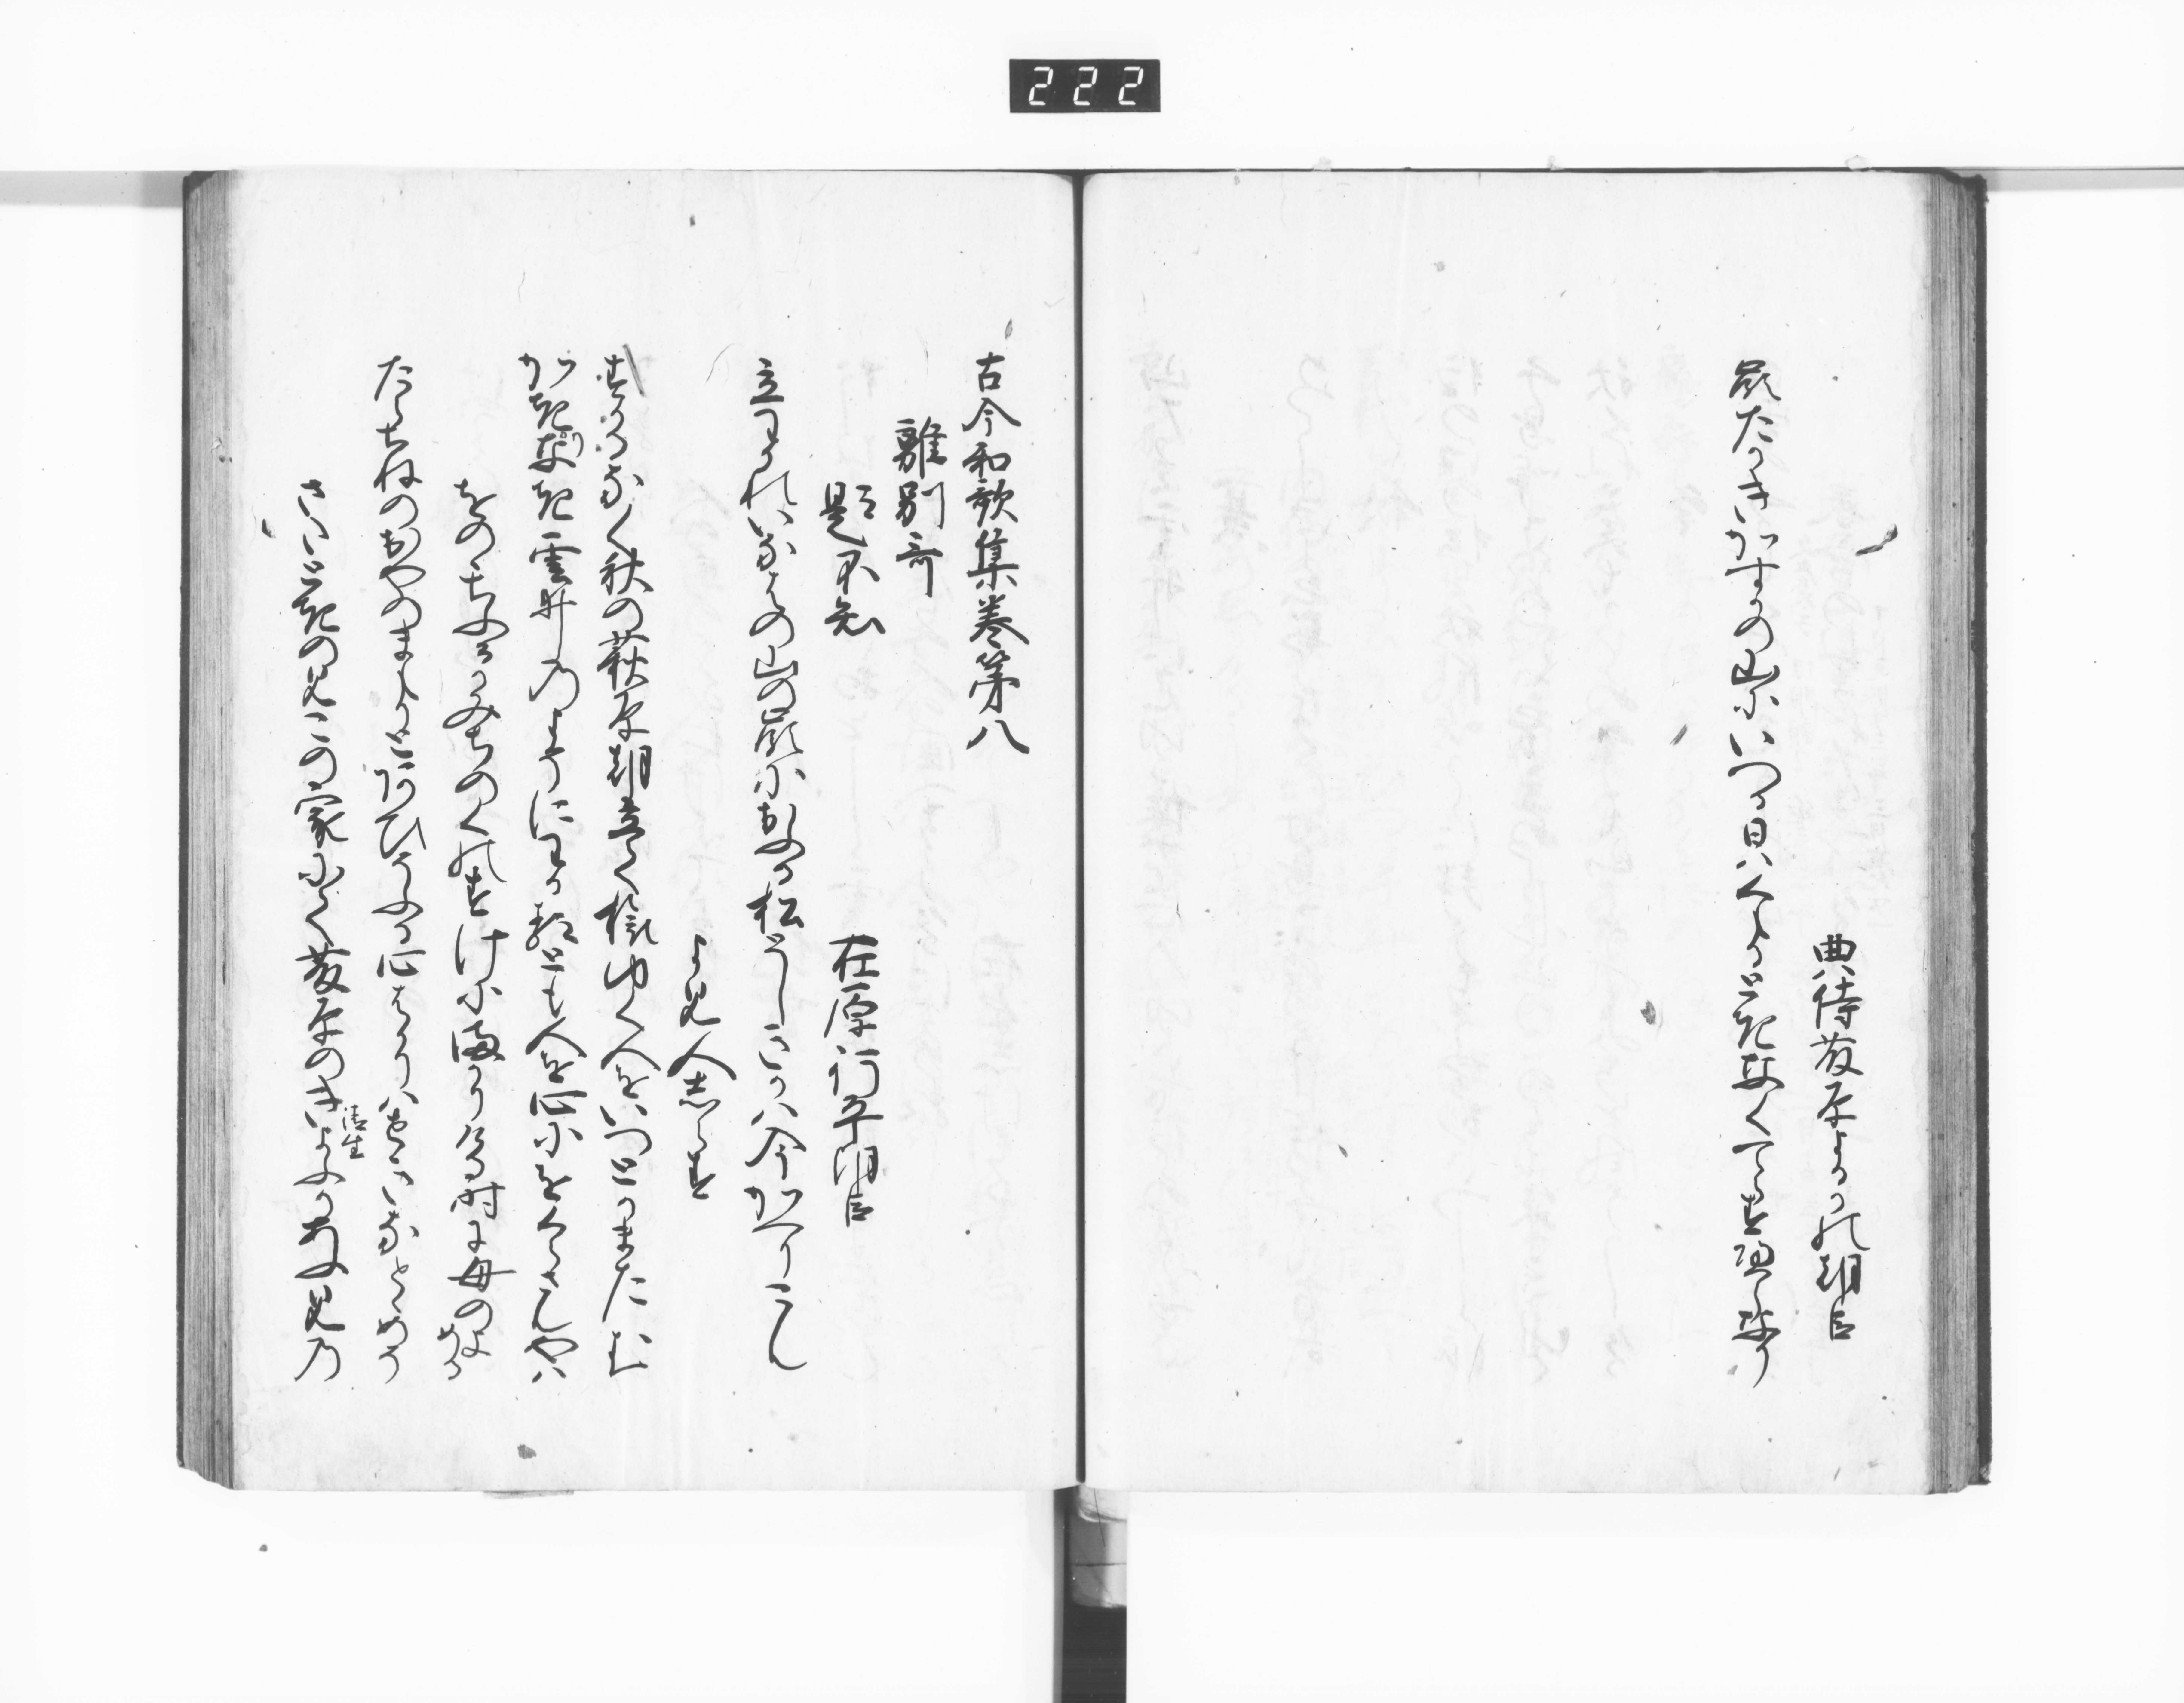 222
典侍藤原よるかの朝臣
嶺たかきかすかの山にいつる日はくもる时なくてらすへらなり
古今和歌集巻第八
離別哥
題不知
在原行平朝臣
立わかれいなはの山の嶺におふる松としきかは今かへりこん
よみ人しらす
すかるなく秋の萩原朝立て旅ゆく人をいつとかまたむ
かきりなき雲井のよそにわかるとも人を心にをくらさんやは
をのゝちふるかみちのくのすけにまかりける時に母のよめる
たらちねのおやのまもりとあひそふる心はかりはせきなとゝめそ
さたときのみこの家にて藤原のきよふかあふみの
清生